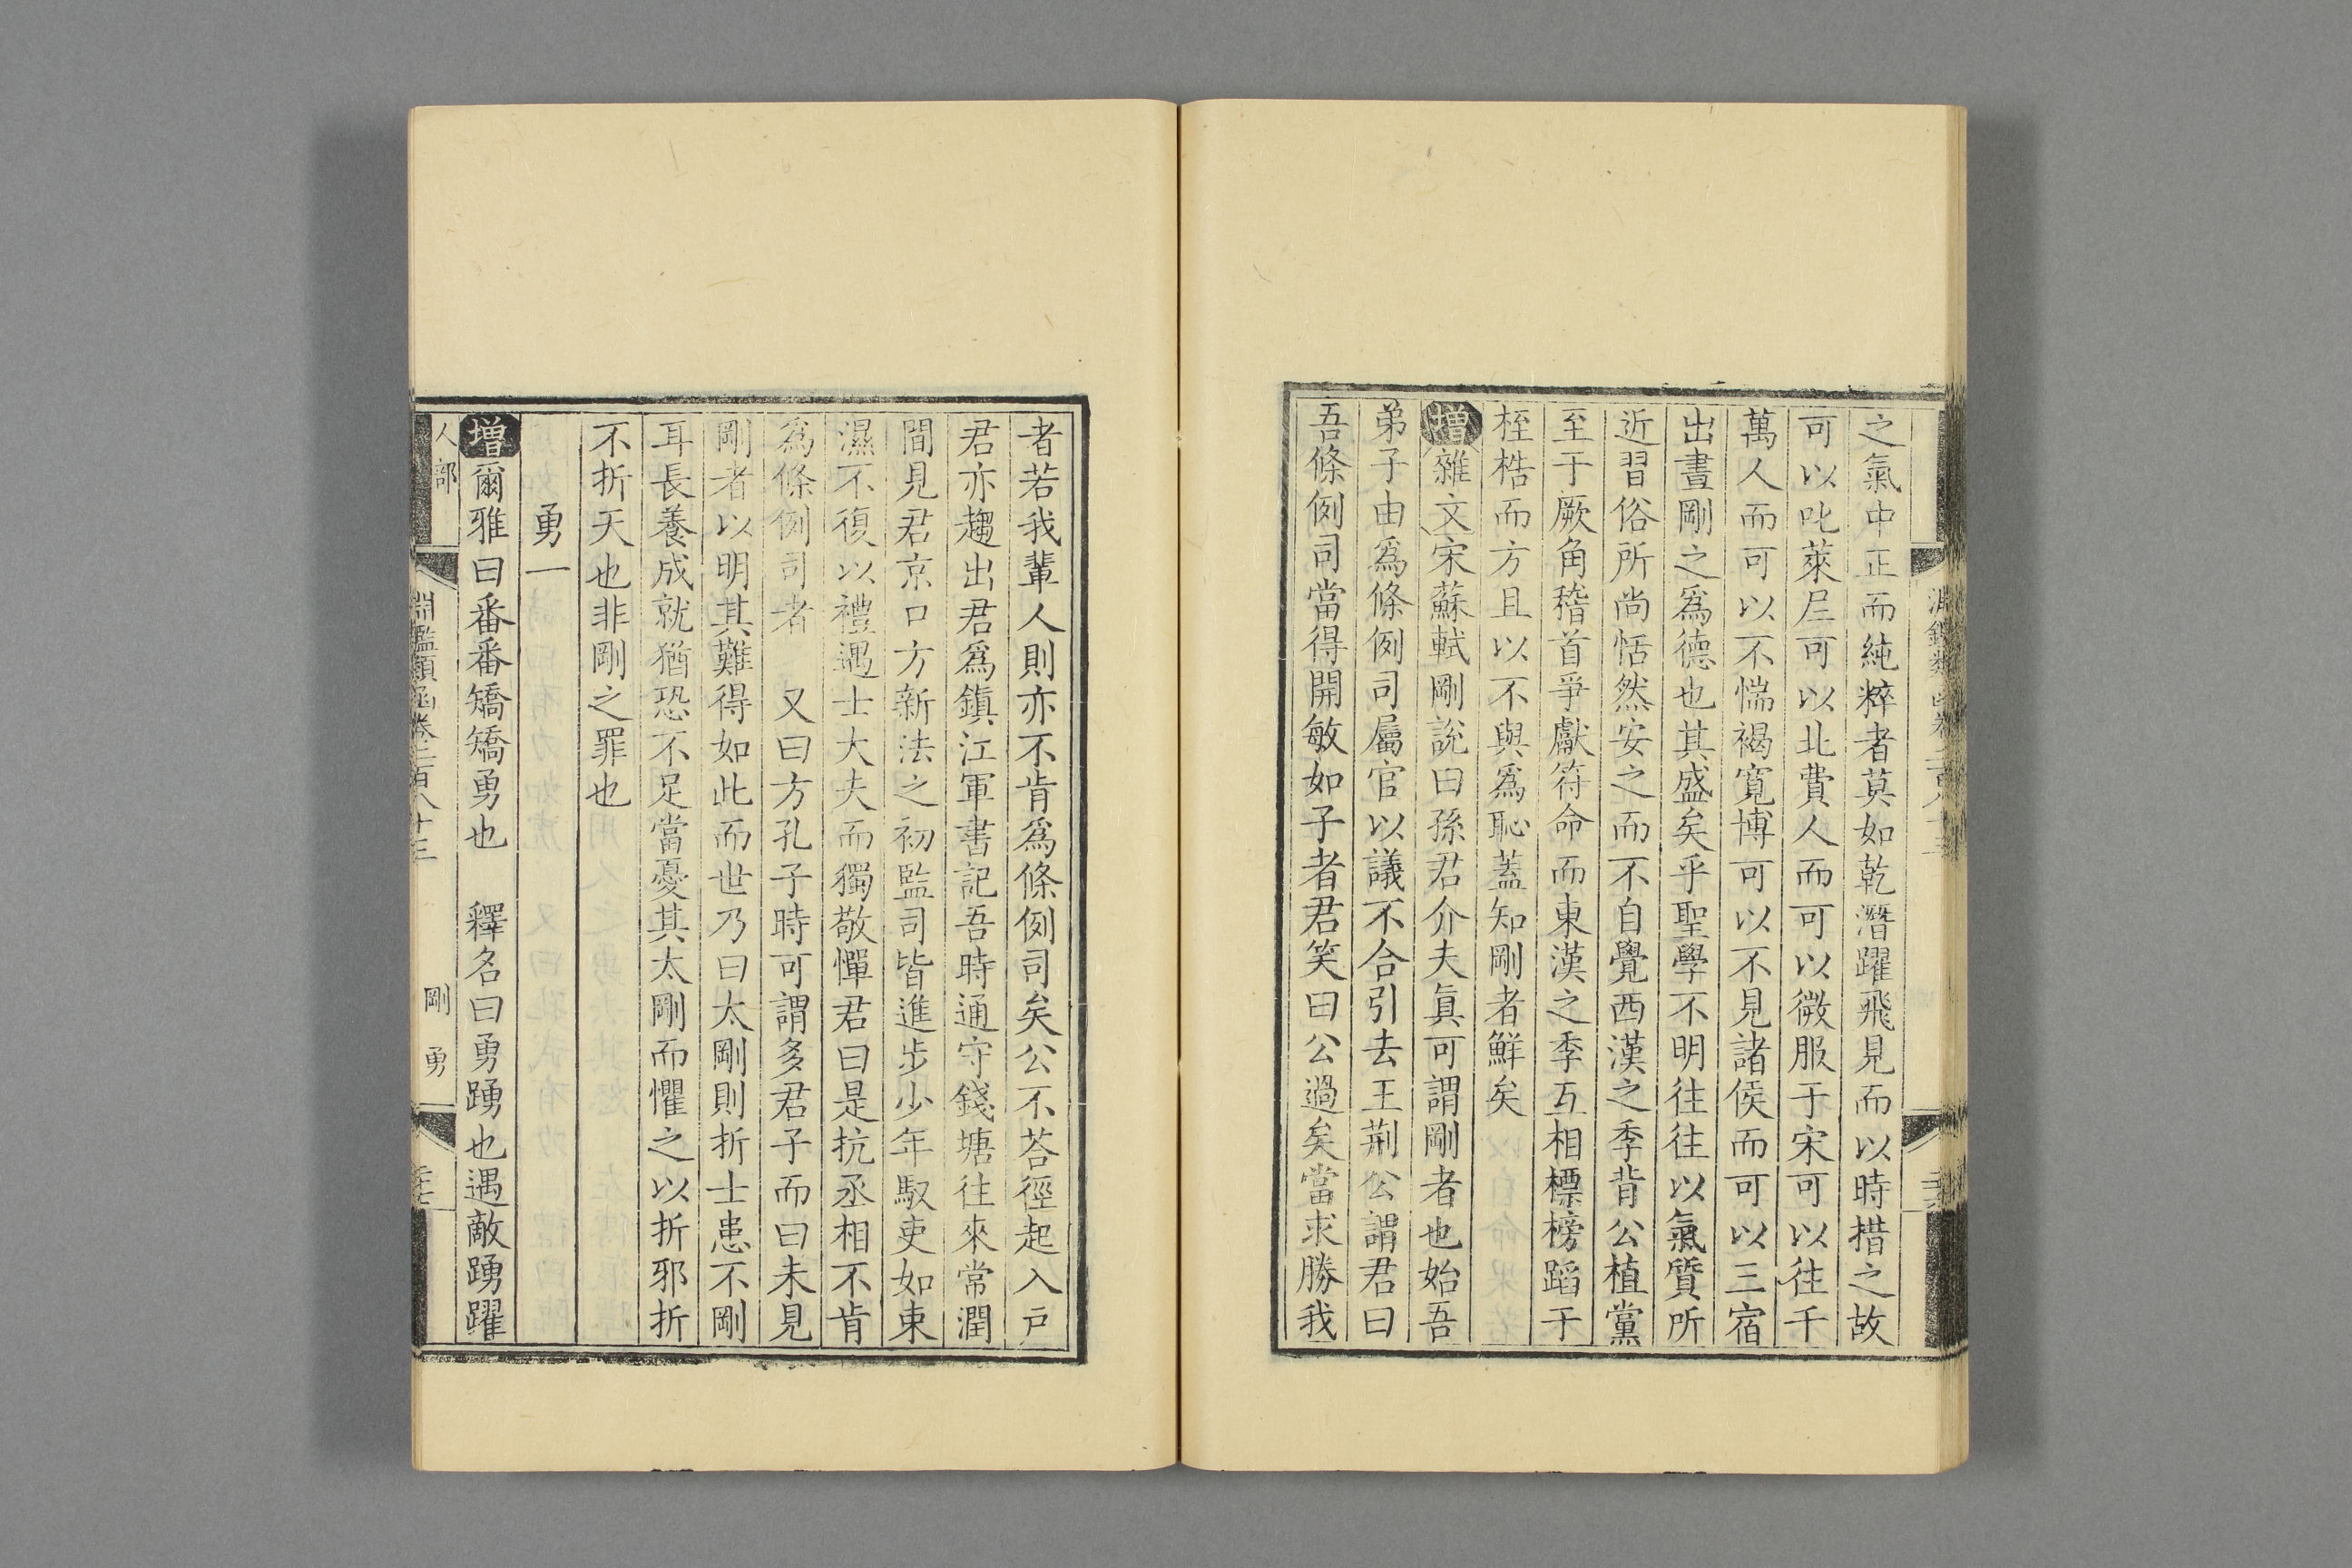 之氣中正而純粹者莫如乾潛躍飛見而以時措之故
可以叱萊𡰱可以北費人而可以微服于宋可以往千
萬人而可以不惴褐寬博可以不見諸侯而可以三宿
出晝剛之爲德也其盛矣乎聖學不明往往以氣質所
近習俗所尚恬然安之而不自覺西漢之季背公植黨
至于厥角稽首爭獻符命而東漢之季互相標榜蹈于
桎梏而方且以不與爲恥蓋知剛者鮮矣
增雜文宋蘇軾剛說曰孫君介夫眞可謂剛者也始吾
弟子由爲條例司屬官以議不合引去王荆公謂君曰
吾條例司當得開敏如子者君笑曰公過矣當求勝我
者若我輩人則亦不肯爲條例司矣公不荅徑起入戸
君亦趨出君爲鎮江軍書記吾時通守錢塘往來常潤
間見君京口方新法之初監司皆進步少年馭吏如東
濕不復以禮遇士大夫而獨敬憚君曰是抗丞相不肯
爲條例司者　又曰方孔子時可謂多君子而曰未見
剛者以明其難得如此而世乃曰太剛則折士患不剛
耳長養成就猶恐不足當憂其太剛而懼之以折邪折
不折天也非剛之罪也
勇一
增爾雅曰番番矯矯勇也　釋名曰勇踴也遇敵踴躍
人部
淵鑑類函卷二百八十三
剛　勇一